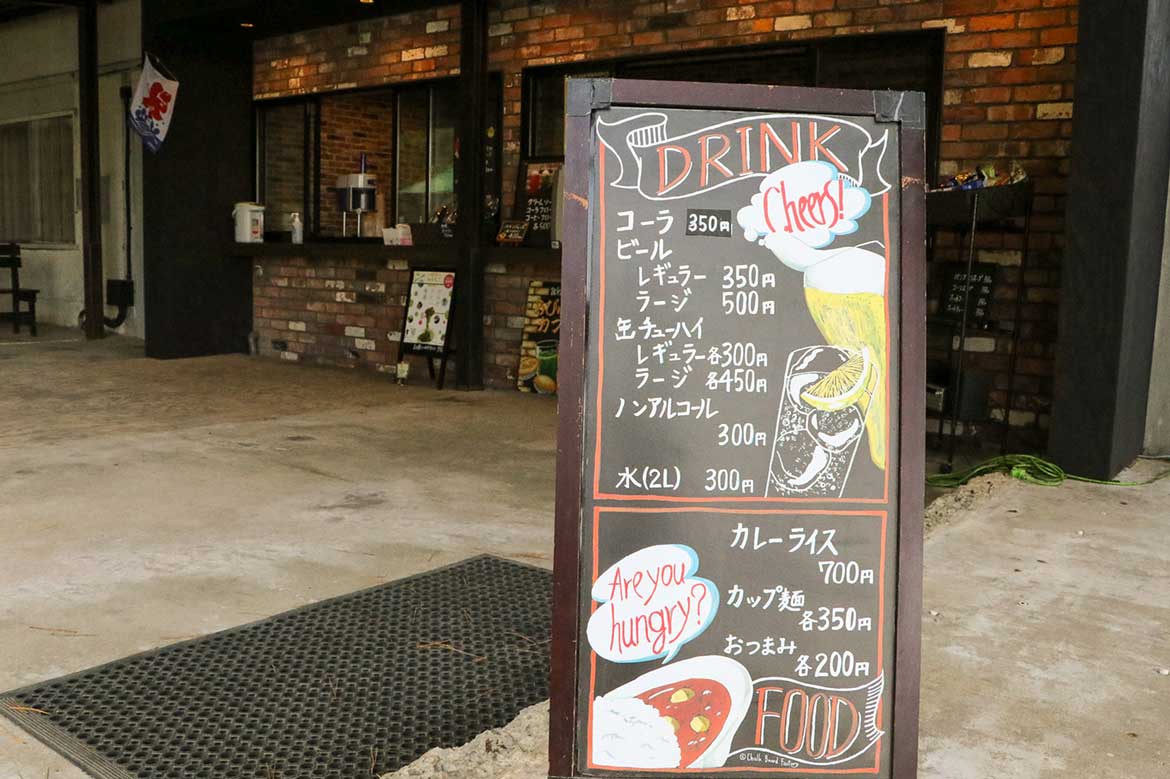 DRINK
Cheers!
コーラ 350円
ビール
レギュラー 350円
ラージ 500円
缶チューハイ
レギュラー各300円
ラージ 各450円
ノンアルコール
300円
水(2L) 300円
カレーライス
700円
Are you
hungry?
カップ麺
各350円
おつまみ
各200円
FOOD